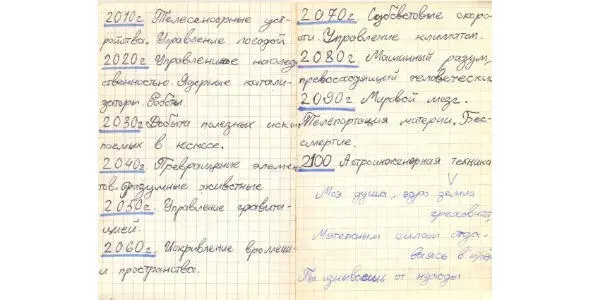 2010г. Телесенсорные уст-
ройства. Управление погодой
2020г. Управление наслед
ственностью. Ядерные катали-
заторы. Роботы.
2030г. Добыча полезных иско
паемых в космосе.
2040г. Превращение элемен
тов. Разумные животные
2050г. Управление гравита-
цией.
2060г. Искривление времени
и пространства.
2070г. Субсветовые скоро
сти. Управление климатом.
2080г. Машинный разум,
превосходящий человеческий
2090г. Мировой мозг.
Телепортация материи. Бес-
смертие.
2100 Астроинженерная техника
Моя душа, ядро земли
греховной
Мятежным силам отда-
ваясь в
Ты от нужды